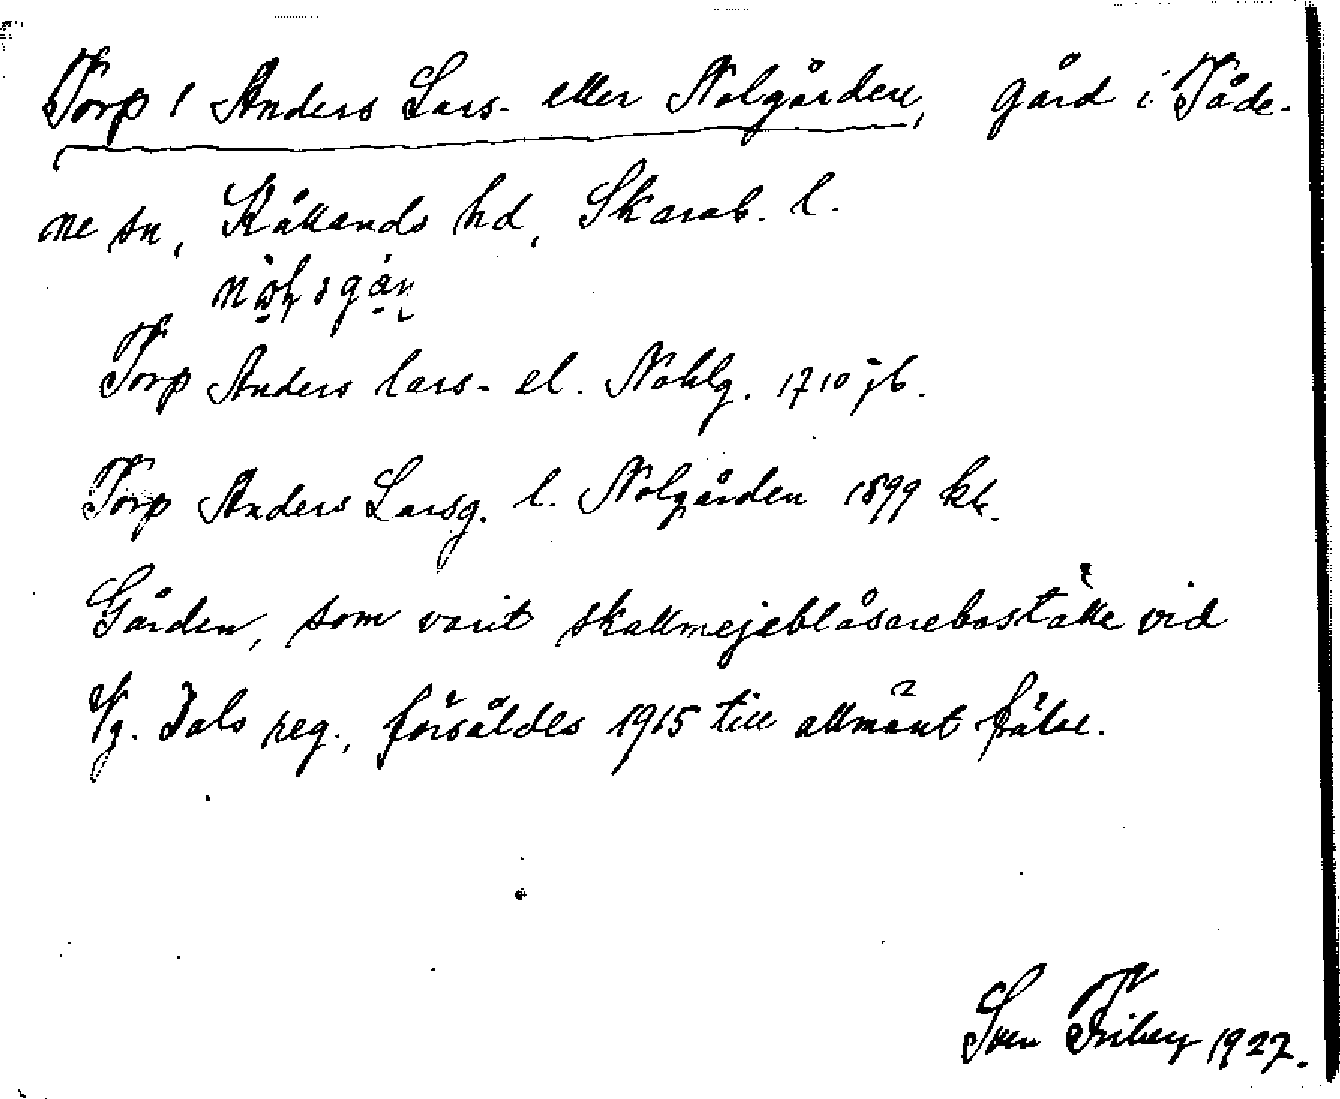 Torp, Anders Lars- eller Nolgården, gård i Tåde-
ne sn, Kållands hd, Skarab. l.
Torp Anders Lars- el. Nohlg. 1710 jb.
Torp Anders Larsg. l. Nolgården 1899 kk.
Gården, som varit skallmejeblåsareboställe vid
Vg. Dals reg., försåldes 1915 till allmänt frälse.
Sven Friberg 1927.